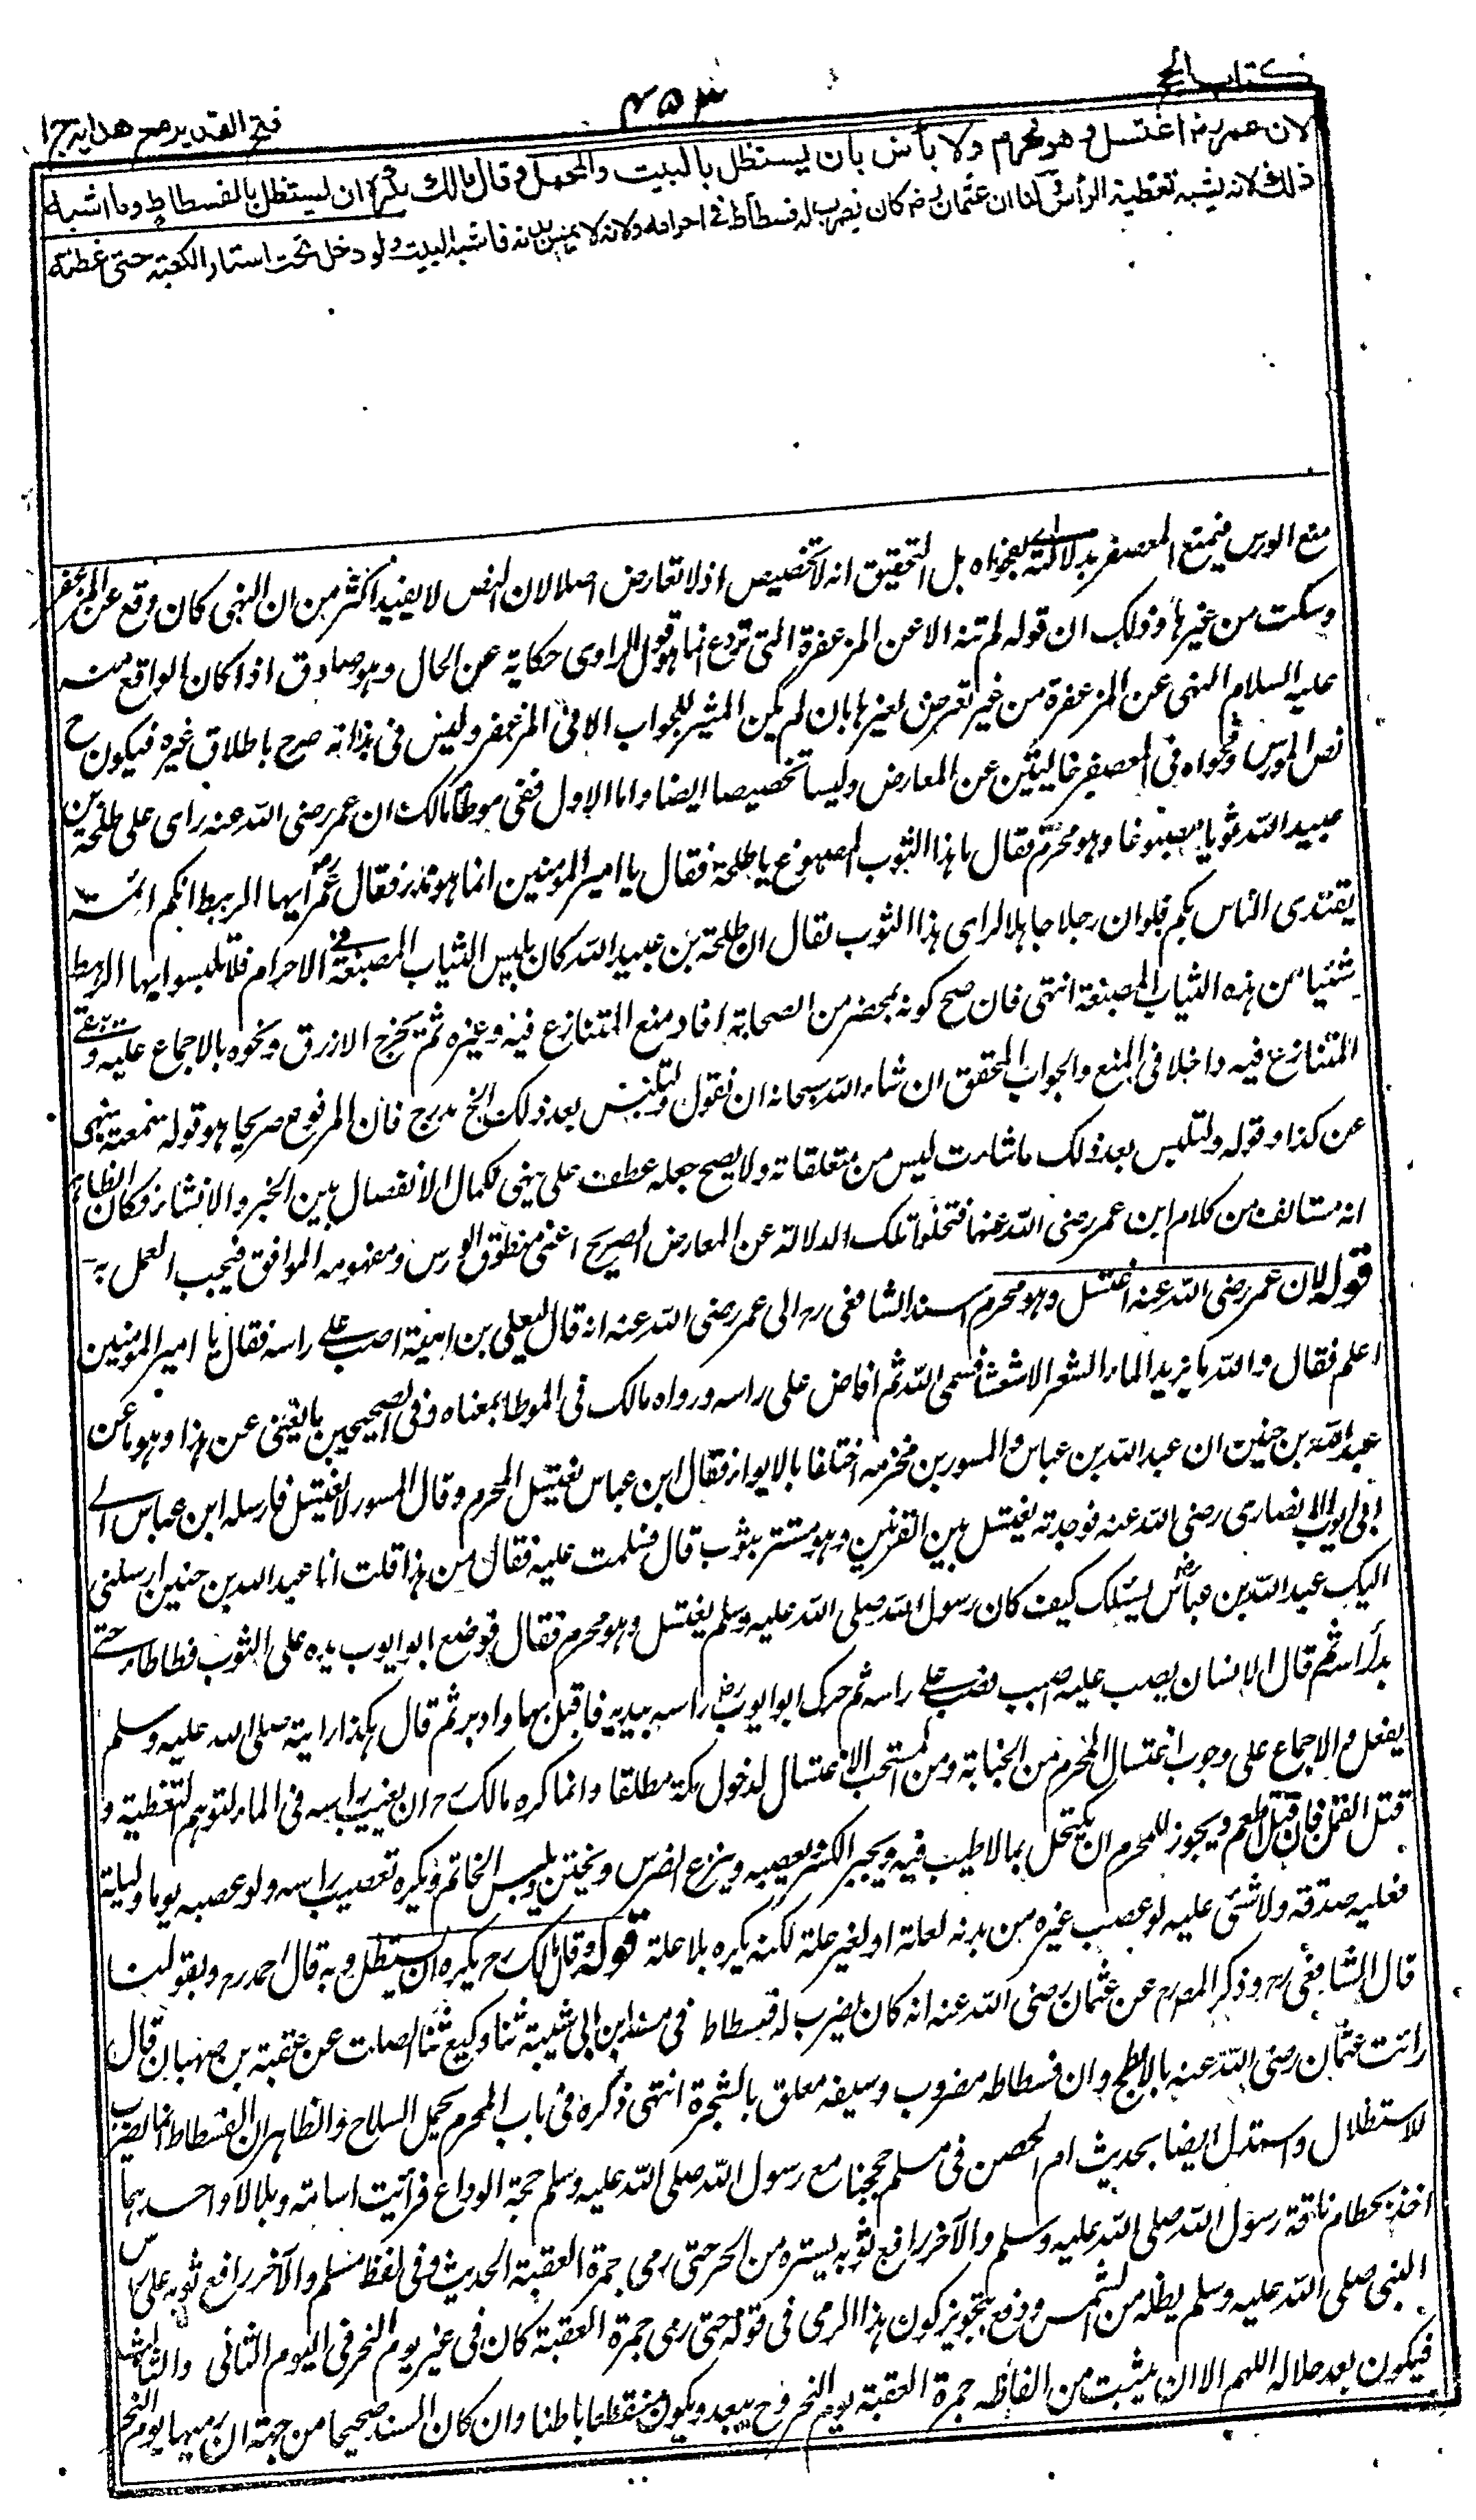 كتاب الحج
٤٥٣
فتح القدير مع هدايه ج ا
لان عمر رض اغتسل وهو محرم ولا بأس بان يستظل بالبيت والمحمل وقال مالك يكره ان يستظل بالفسطاط وما اشبه
ذلك لانه يشبه تغطية الرأس ولنا ان عثمان رض كان يضرب له فسطاط فى احرامه ولانه لا يمس بدنه فاشبه البيت ولو دخل تحت استار الكعبة حتى غطته
منع الورس فيمتنع المعصفر بدلالته اى بفحواه بل التحقيق انه لا تخصيص اذ لا تعارض اصلا لان النص لا يفيد اكثر من ان النهى كان وقع عن المزعفر
وسكت من غيرها وذلك ان قوله لم تنه الا عن المزعفرة التى تردع انما هو قول الراوى حكاية عن الحال وهو صادق اذا كان الواقع منه
عليه السلام النهى عن المزعفرة من غير تعرض لغيرها بان لم يكن المثير للجواب الا فى المزعفر وليس فى هذا انه صرح باطلاق غيره فيكون ح
نص الورس وفحواه فى المعصفر خاليتين عن المعارض وليسا تخصيصا ايضا واما الاول ففى موطا مالك ان عمر رضى الله عنه راى على طلحة بن
عبيد الله ثوبا مصبوغا وهو محرم فقال ما هذا الثوب المصبوغ يا طلحة فقال يا امير المومنين انما هو مدر فقال عمر ايها الرهط انكم ائمة
يقتدى الناس بكم فلو ان رجلا جاهلا راى هذا الثوب لقال ان طلحة بن عبيد الله كان يلبس الثياب المصبغة فى الاحرام فلا تلبسوا ايها الرهط
شيئا من هذه الثياب المصبغة انتهى فان صح كونه بمحضر من الصحابة افاد منع المتنازع فيه وغيره ثم يخرج الازرق ونحوه بالاجماع عليه ويبقى
المتنازع فيه داخلا فى المنع والجواب المحقق ان شاء الله سبحانه ان نقول ولتلبس بعد ذلك الخ مدرج فان المرفوع صريحا هو قوله سمعته ينهى
عن كذا وقوله ولتلبس بعد ذلك ما شاءت ليس من متعلقاته ولا يصح جعله عطف على ينهى لكمال الانفصال بين الخبر والانشاء فكان الظاهر
انه مستانف من كلام ابن عمر رضى الله عنها فتخلو تلك الدلالة عن المعارض الصريح اعنى منطوق الورس ومفهومه الموافق فيجب العمل به
قوله لان عمر رضى الله عنه اغتسل وهو محرم اسند الشافعى رح الى عمر رضى الله عنه انه قال ليعلى بن امية اصب على راسه فقال يا امير المومنين
اعلم فقال والله ما يزيد الماء الشعر الا شعثا فسمى الله ثم افاض على راسه ورواه مالك فى الموطا بمعناه وفى الصحيحين ما يغنى عن هذا وهو ما عن
عبد الله بن حنين ان عبد الله بن عباس والمسور بن مخرمه اختلفا بالابواء فقال ابن عباس يغتسل المحرم وقال المسور لا يغتسل فارسله ابن عباس الى
ابى ايوب الانصارى رضى الله عنه فوجدته يغتسل بين القرنين وهو مستتر بثوب قال فسلمت عليه فقال من هذا قلت انا عبد الله بن حنين ارسلنى
اليك عبد الله بن عباس رض يسئلك كيف كان رسول الله صلى الله عليه وسلم يغتسل وهو محرم فقال فوضع ابو ايوب يده على الثوب فطاطاه حتى
بدا راسه ثم قال لانسان يصب عليه اصبب فصب على راسه ثم حرك ابو ايوب رض راسه بيديه فاقبل بهما وادبر ثم قال هكذا رايته صلى الله عليه وسلم
يفعل والاجماع على وجوب اغتسال المحرم من الجنابة ومن المستحب الاغتسال لدخول مكة مطلقا وانما كره مالك رح ان يغيب راسه فى الماء لتوهم التغطية و
قتل القمل فان قتل اطعم ويجوز للمحرم ان يكتحل بما لا طيب فيه ويجبر الكسر ويعصبه وينزع الضرس ويختتن ويلبس الخاتم ويكره تعصيب راسه ولو عصبه يوما وليلة
فعليه صدقة ولا شئى عليه لو عصب غيره من بدنه لعلة او لغير علة لكنه يكره بلا علة قوله وقال مالك رح يكره ان يستظل وبه قال احمد رح وبقولنا
قال الشافعى رح وذكر المص رح عن عثمان رضى الله عنه انه كان يضرب له فسطاط فى مسند ابن ابى شيبة ثنا وكيع ثنا الصلت عن عقبة بن صهبان قال
رائت عثمان رضى الله عنه بالابطح وان فسطاطه مضروب وسيفه معلق بالشجرة انتهى ذكره فى باب المحرم يحمل السلاح والظاهر ان الفسطاط انما يضرب
للاستظلال واستدل ايضا بحديث ام الحصين فى مسلم حججنا مع رسول الله صلى الله عليه وسلم حجة الوداع فرائيت اسامة وبلالا واحدهما
اخذ بخطام ناقة رسول الله صلى الله عليه وسلم والآخر رافع ثوبه يستره من الحر حتى رمى جمرة العقبة الحديث وفى لفظ مسلم والآخر رافع ثوبه على راس
النبى صلى الله عليه وسلم يظله من الشمس ودفع بتجويز كون هذا الرمى فى قوله حتى رمى جمرة العقبة كان فى غير يوم النحر فى اليوم الثانى والثالث
فيكون بعد حلاله اللهم الا ان يثبت من الفاظه جمرة العقبة يوم النحر وح يبعد ويكون منقطعا باطنا وان كان السند صحيحا من جهة ان رميها يوم النحر